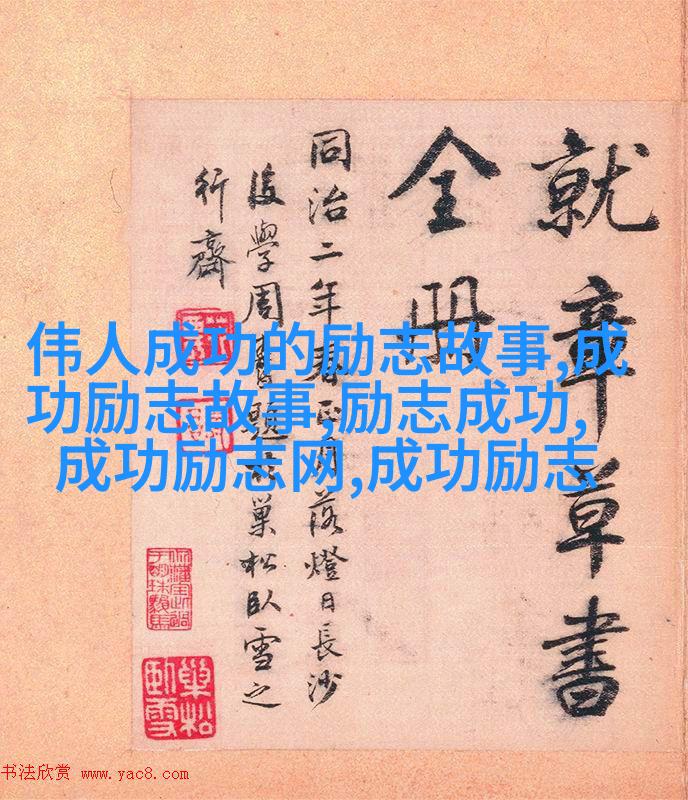 就章草書
全冊
同治二年春正月落燈日長沙
後學周壽題於巢松臥雪之
行齋
伟人成功的励志故事,成
功励志故事,励志成功,
成功励志网,成功励志
巢松
臥雪
书法欣赏 www.yac8.com